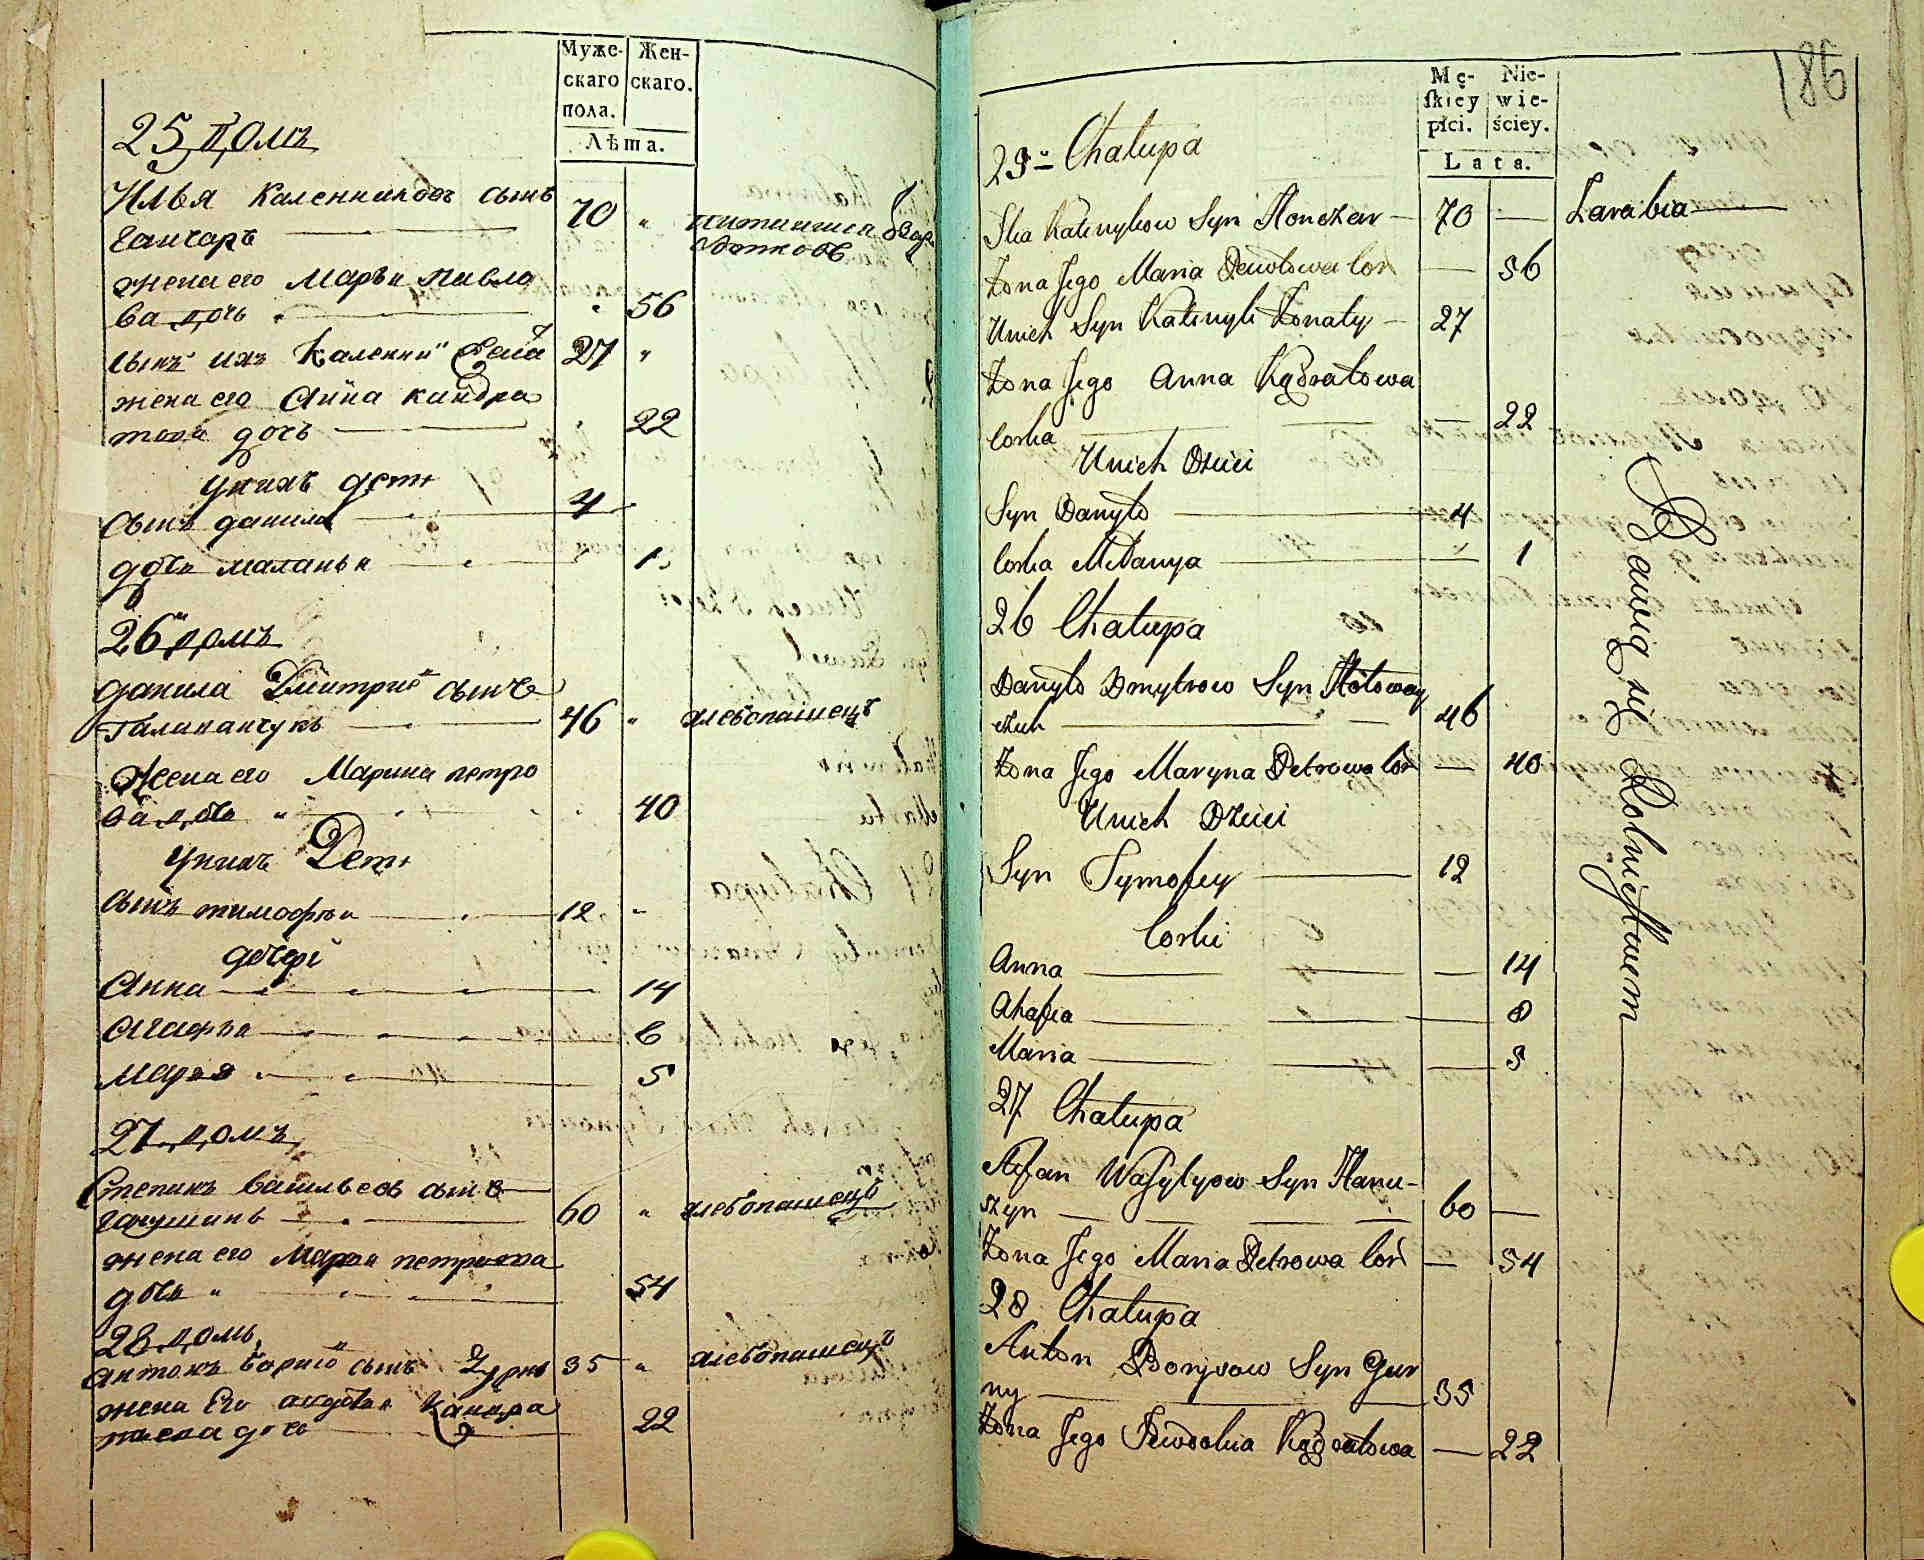 Муже-
скаго
пола.
Жен-
скаго.
Лѣта.
25 домъ
Илья Каленниковъ сынъ 70 "
Ганчаръ
жена его Марья Павло
ва дочь 56
сынъ ихъ Каленни 27 "
жена его Анна кандра
това дочь 22
унихъ дети
сынъ данила 4
дочь маланья 1
26 домъ
данила Дмитрию сынъ
Галиканчукъ 46 " хлебопашецъ
Жена его Марина петро
ва дочь 40
унихъ Дети
сынъ тимофѣи 12 "
дочери
Анна 14
Агафья 6
Марья 5
27 домъ
Степанъ васильевъ сынъ
Ганушинъ 60 " хлебопашецъ
жена его Марья петрова
дочь " 54
28 домъ
антонъ борисо сынъ 35 " хлебопашецъ
жена Его авдотья Кандра
това дочь 22
186
Mę-
ſkiey
płci.
Nie-
wie-
ściey.
Lata.
25 Chałupa
Ilia Kalenykow Syn Honczar 70 Zarabia
Żona Jego Maria Pawłowa Cor 56
Unich Syn Kalenyk Żonaty 27
Żona Jego Anna Kądratowa
Corka 22
Unich Dzieci
Syn Danyło 4
Corka Małanya 1
26 Chałupa
Danyło Dmytrow Syn Hołoway
czuk 46
Żona Jego Maryna Petrowa Cor 40
Unich Dzieci
Syn Tymofiey 12
Corki
Anna 14
Ahafia 8
Maria 5
27 Chałupa
Stefan Wasylyow Syn Hanu-
szyn 60
Żona Jego Maria Petrowa Cor 54
28 Chałupa
Anton Borysow Syn Gur
ny 35
Żona Jego Jewdokia Kądratowa 22
Bawią się Rolnictwem